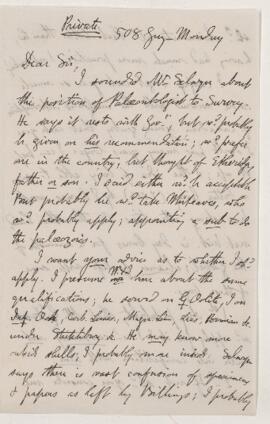 Private. 508 Guy Monday
Dear Sir,
I sounded Mr Selwyn about
the position of Palæontologist to Survey.
He says it rests with Govt, but wd probably
be given on his recommendation; wd prefer
one in the country; but thought of Etheridge,
father or son. I said either wd be acceptable
but probably he wd take Whiteaves, who
wd probably apply; appointing a sub to do
the palæozoics.
I want your advice as to whether I shd
apply. I presume Wh. has about the same
qualifications; he served in G. Oolite, I on
Inf. Ool, Carb. Limes, Magn. Lim, Lias
under It. He may know more
about shells, I probably more Selwyn
says there is vast confusion of specimens
& papers as left by Billings; I probably